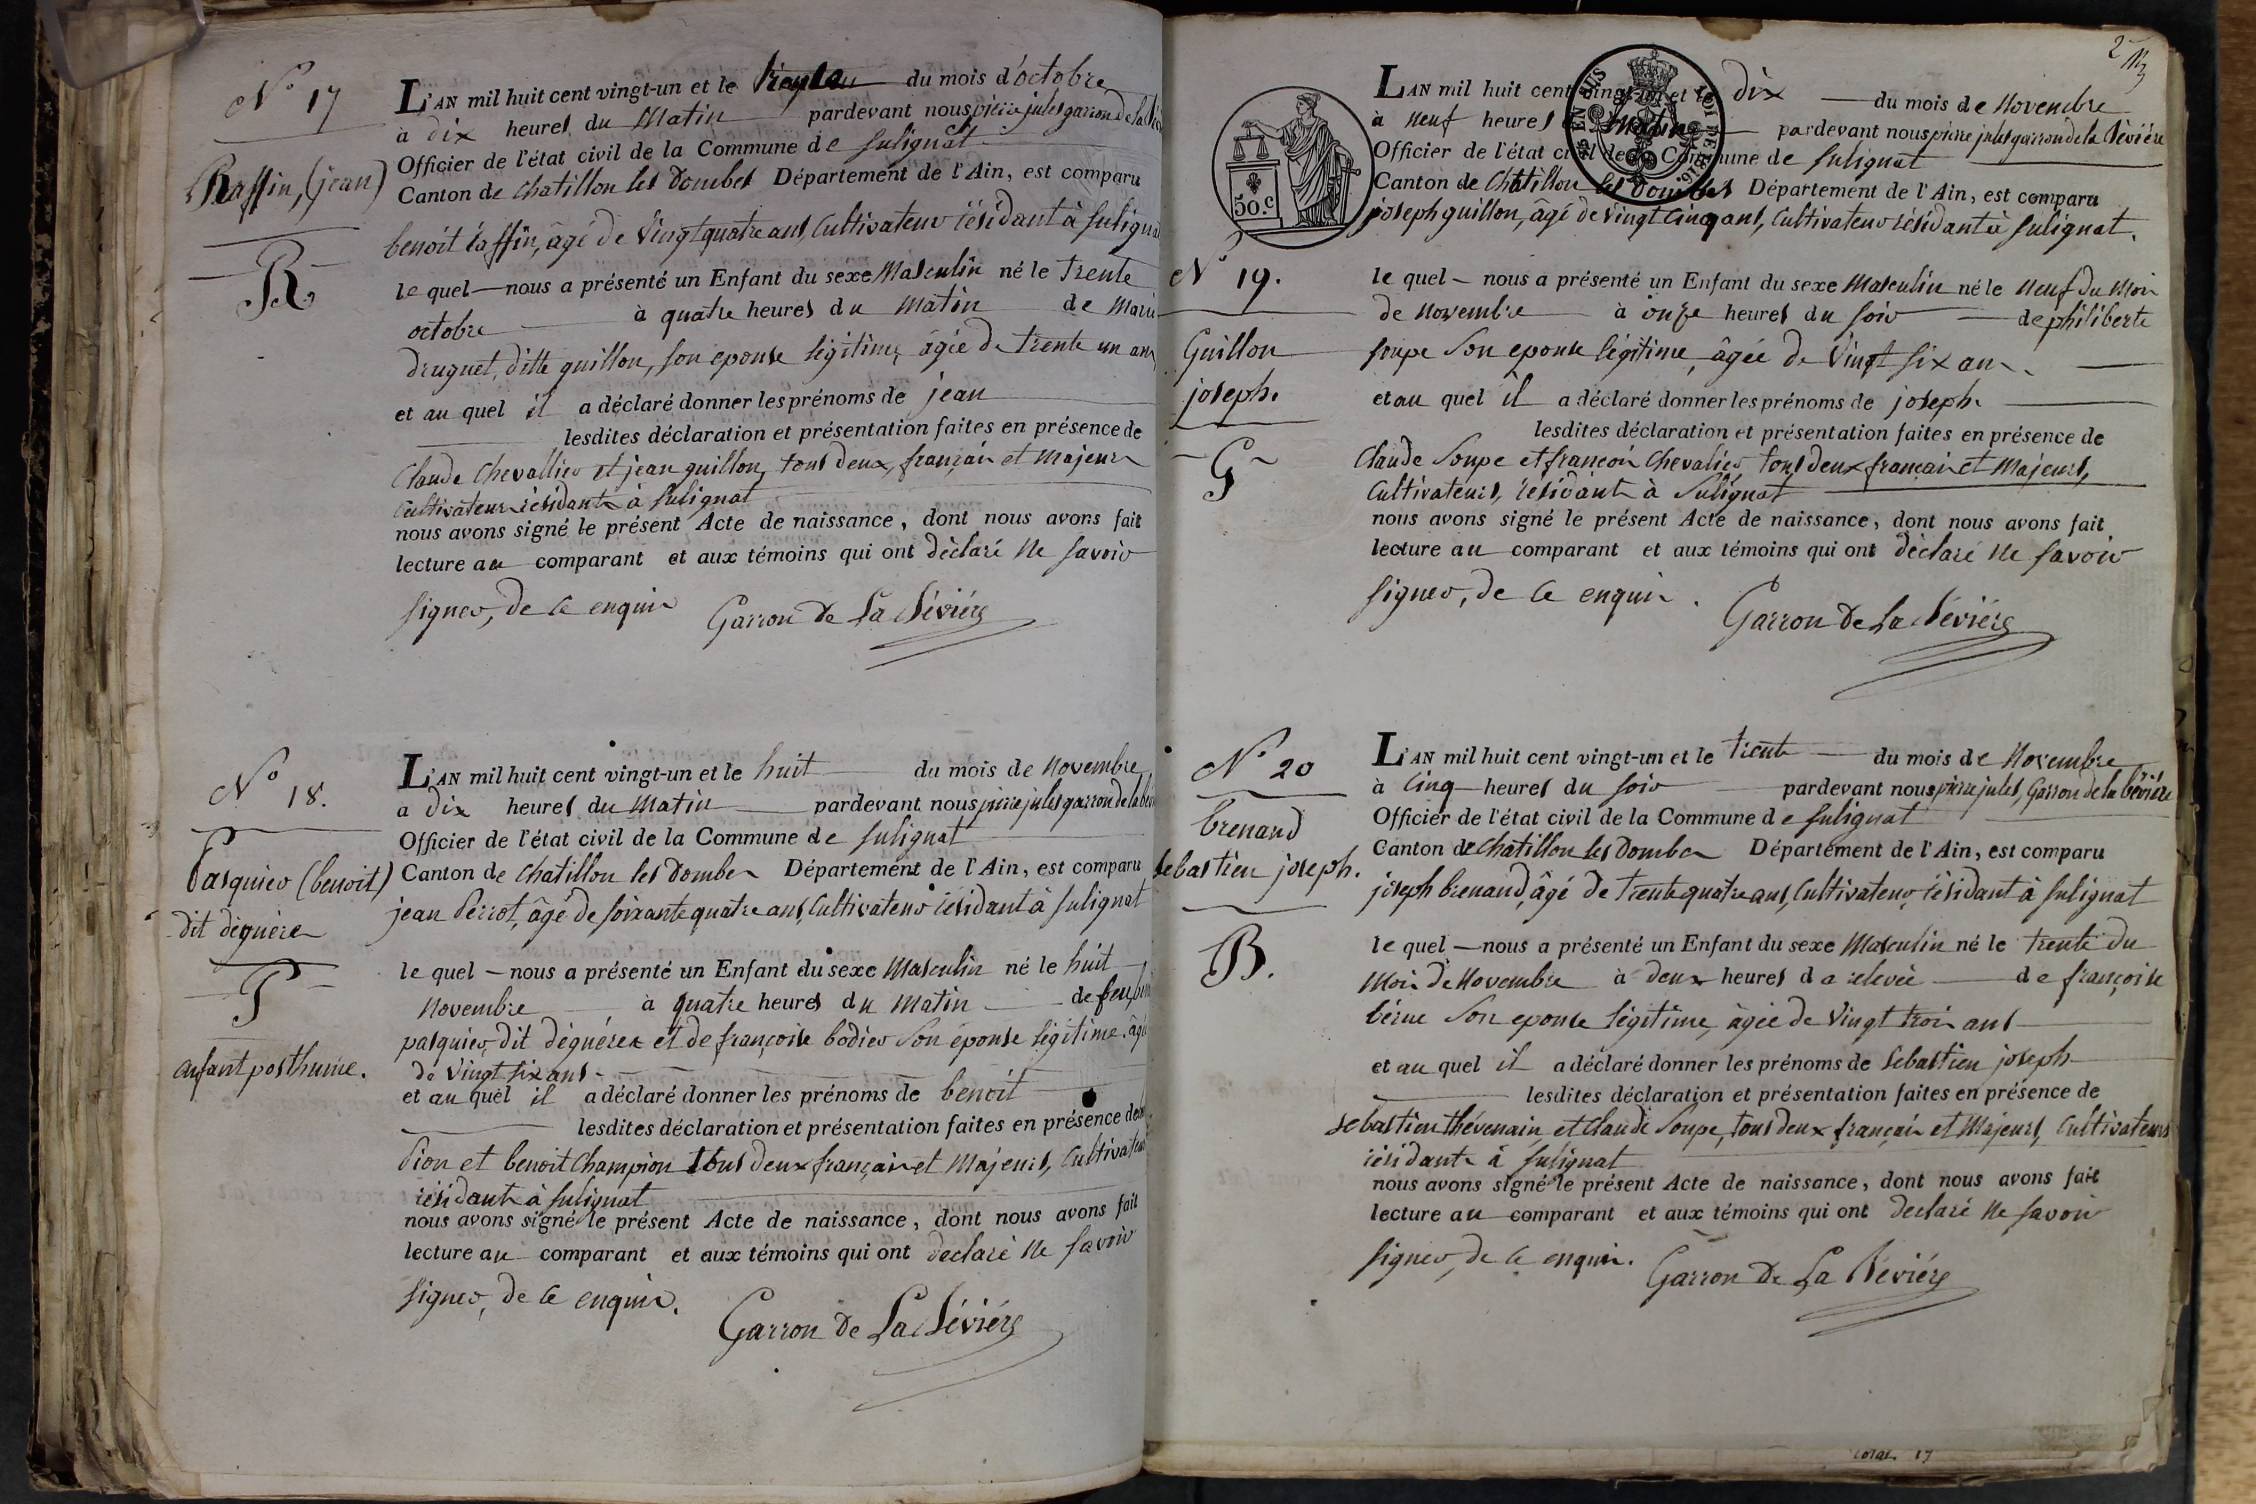 N.° 17
Raffin, (jean)
R
L'AN mil huit cent vingt-un et le du mois d'octobre
à dix heures du Matin pardevant nous pierre jules garron de la
Officier de l'état civil de la Commune de Sulignat
Canton de Chatillon les Dombes Département de l'Ain, est comparu
benoit raffin, âgé de Vingt quatre ans, Cultivateur résidant à Sulignat
le quel nous a présenté un Enfant du sexe Masculin né le trente
octobre à quatre heures du Matin de Marie
druguet, ditte guillon, son epouse légitime, âgée de trente un ans
et au quel il a déclaré donner les prénoms de jean
lesdites déclaration et présentation faites en présence de
Claude Chevallier et jean guillon, tous deux, français et Majeurs
Cultivateurs résidants à Sulignat
nous avons signé le présent Acte de naissance, dont nous avons fait
lecture au comparant et aux témoins qui ont déclaré ne savoir
signer, de ce enquis Garron de La Bévière
N.° 18.
Pasquier (benoit)
dit déguères
P
enfant posthume.
L'AN mil huit cent vingt-un et le huit du mois de Novembre
à dix heures du Matin pardevant nous pierre jules garron de la
Officier de l'état civil de la Commune de Sulignat
Canton de Chatillon les Dombes Département de l'Ain, est comparu
jean Perrot, âgé de soixante quatre ans, Cultivateur résidant à Sulignat
le quel nous a présenté un Enfant du sexe Masculin né le huit
Novembre à quatre heures du Matin de feu
pasquier, dit déguères et de françoise bodier Son épouse légitime, âgée
de Vingt six ans
et au quel il a déclaré donner les prénoms de benoit
lesdites déclaration et présentation faites en présence de
Pion et benoit Champion tous deux français et Majeurs, Cultivateurs
résidants à Sulignat
nous avons signé le présent Acte de naissance, dont nous avons fait
lecture au comparant et aux témoins qui ont déclaré ne savoir
signer, de ce enquis. Garron de La Bévière
50.c
N° 19.
Guillon
joseph.
G
L'AN mil huit cent vingt-un et le dix du mois de Novembre
à neuf heures du matin pardevant nous pierre jules garron de la Bévière
Officier de l'état civil de la Commune de Sulignat
Canton de Chatillon les Dombes Département de l'Ain, est comparu
joseph guillon, âgé de Vingt Cinq ans, Cultivateur résidant à Sulignat.
le quel nous a présenté un Enfant du sexe Masculin né le neuf du Mois
de Novembre à onze heures du soir de philiberte
soupe Son epouse légitime, âgée de Vingt six ans
et au quel il a déclaré donner les prénoms de joseph.
lesdites déclaration et présentation faites en présence de
Claude Soupe et françois Chevalier, tous deux français et Majeurs,
Cultivateurs, résidants à Sulignat
nous avons signé le présent Acte de naissance, dont nous avons fait
lecture au comparant et aux témoins qui ont déclaré ne savoir
signer, de ce enquis. Garron de La Bévière
N.° 20
brenand
sebastien joseph.
B.
L'AN mil huit cent vingt-un et le trente du mois de Novembre
à Cinq heures du soir pardevant nous pierre jules, Garron de la bévière
Officier de l'état civil de la Commune de Sulignat
Canton de Chatillon les Dombes Département de l'Ain, est comparu
joseph brenand, âgé de trente quatre ans, Cultivateur, résidant à Sulignat
le quel nous a présenté un Enfant du sexe Masculin né le trente du
Mois de Novembre à deux heures de relevée de françoise
Son epouse légitime, âgée de Vingt trois ans
et au quel il a déclaré donner les prénoms de Sebastien joseph
lesdites déclaration et présentation faites en présence de
Sebastien thévenain, et Claude Soupe, tous deux français et Majeurs, Cultivateurs
résidants à Sulignat
nous avons signé le présent Acte de naissance, dont nous avons fait
lecture au comparant et aux témoins qui ont déclaré ne savoir
signer, de ce enquis. Garron de La Bévière